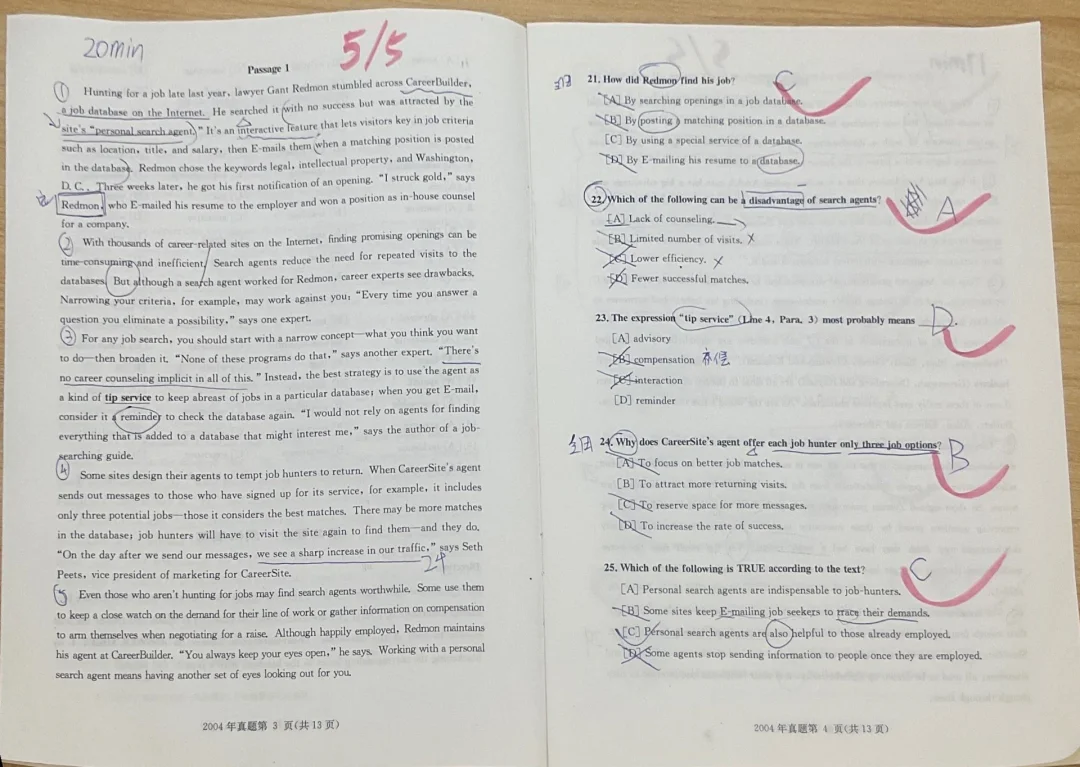 20min
5/5
Passage 1
① Hunting for a job late last year, lawyer Gant Redmon stumbled across CareerBuilder,
a job database on the Internet. He searched it with no success but was attracted by the
site's "personal search agent." It's an interactive feature that lets visitors key in job criteria
such as location, title, and salary, then E-mails them when a matching position is posted
in the database. Redmon chose the keywords legal, intellectual property, and Washington,
D. C.. Three weeks later, he got his first notification of an opening. "I struck gold," says
Redmon, who E-mailed his resume to the employer and won a position as in-house counsel
for a company.
② With thousands of career-related sites on the Internet, finding promising openings can be
time-consuming and inefficient. Search agents reduce the need for repeated visits to the
databases. But although a search agent worked for Redmon, career experts see drawbacks.
Narrowing your criteria, for example, may work against you: "Every time you answer a
question you eliminate a possibility," says one expert.
③ For any job search, you should start with a narrow concept—what you think you want
to do—then broaden it. "None of these programs do that," says another expert. "There's
no career counseling implicit in all of this." Instead, the best strategy is to use the agent as
a kind of tip service to keep abreast of jobs in a particular database; when you get E-mail,
consider it a reminder to check the database again. "I would not rely on agents for finding
everything that is added to a database that might interest me," says the author of a job-
searching guide.
④ Some sites design their agents to tempt job hunters to return. When CareerSite's agent
sends out messages to those who have signed up for its service, for example, it includes
only three potential jobs—those it considers the best matches. There may be more matches
in the database; job hunters will have to visit the site again to find them—and they do.
"On the day after we send our messages, we see a sharp increase in our traffic," says Seth
Peets, vice president of marketing for CareerSite.
24
⑤ Even those who aren't hunting for jobs may find search agents worthwhile. Some use them
to keep a close watch on the demand for their line of work or gather information on compensation
to arm themselves when negotiating for a raise. Although happily employed, Redmon maintains
his agent at CareerBuilder. "You always keep your eyes open," he says. Working with a personal
search agent means having another set of eyes looking out for you.
2004 年真题第 3 页(共 13 页)
21. How did Redmon find his job? C
[A] By searching openings in a job database.
[B] By posting a matching position in a database.
[C] By using a special service of a database.
[D] By E-mailing his resume to a database.
22. Which of the following can be a disadvantage of search agents? A
[A] Lack of counseling.
[B] Limited number of visits. ×
[C] Lower efficiency. ×
[D] Fewer successful matches.
23. The expression "tip service" (Line 4, Para. 3) most probably means D.
[A] advisory
[B] compensation 补偿
[C] interaction
[D] reminder
24. Why does CareerSite's agent offer each job hunter only three job options? B
[A] To focus on better job matches.
[B] To attract more returning visits.
[C] To reserve space for more messages.
[D] To increase the rate of success.
25. Which of the following is TRUE according to the text? C
[A] Personal search agents are indispensable to job-hunters.
[B] Some sites keep E-mailing job seekers to trace their demands.
[C] Personal search agents are also helpful to those already employed.
[D] Some agents stop sending information to people once they are employed.
2004 年真题第 4 页(共 13 页)